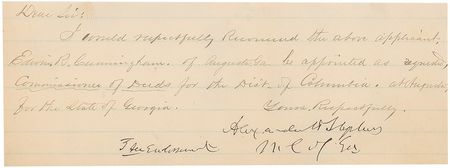 Dear Sir:
I would respectfully Recommend the above applicant,
Edwin R. Cunningham. of Augusta Ga be appointed as
Commissioner of Deeds for the Dist. of Columbia. at Augusta,
for the State of Georgia. Yours, Respectfully.
Alexander H Stephens
M C of Ga